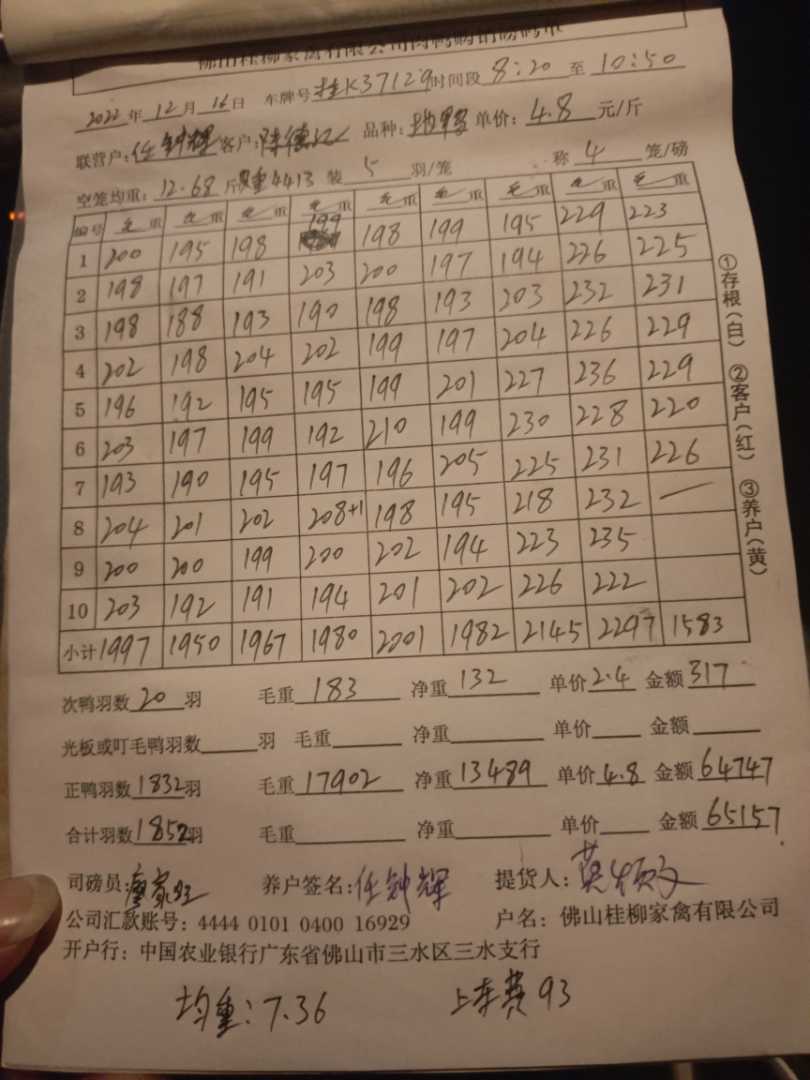 佛山桂柳家禽有限公司肉鸭购销磅码单
2022年12月16日 车牌号桂K37129时间段8:20至10:50
联营户:任钟辉客户:陈德 品种: 单价:4.8元/斤
空笼均重:12.68斤 重4413 装5羽/笼 称4笼/磅
编号 毛重 毛重 毛重 毛重 毛重 毛重 毛重 毛重 毛重
1 200 195 198 199 198 199 195 229 223
2 198 197 191 203 200 197 194 226 225
3 198 188 193 190 198 193 203 232 231
4 202 198 204 202 199 197 204 226 229
5 196 192 195 195 199 201 227 236 229
6 203 197 199 192 210 199 230 228 220
7 193 190 195 197 196 205 225 231 226
8 204 201 202 208+1 198 195 218 232 —
9 200 200 199 200 202 194 223 235
10 203 192 191 194 201 202 226 222
小计 1997 1950 1967 1980 2001 1982 2145 2297 1583
①存根(白) ②客户(红) ③养户(黄)
次鸭羽数20羽 毛重183 净重132 单价2.4 金额317
光板或叮毛鸭羽数 羽 毛重 净重 单价 金额
正鸭羽数1832羽 毛重17902 净重13489 单价4.8 金额64747
合计羽数1852羽 毛重 净重 单价 金额65157
司磅员:廖家 养户签名:任钟辉 提货人:莫
公司汇款账号:4444 0101 0400 16929 户名:佛山桂柳家禽有限公司
开户行:中国农业银行广东省佛山市三水区三水支行
均重:7.36 上车费93